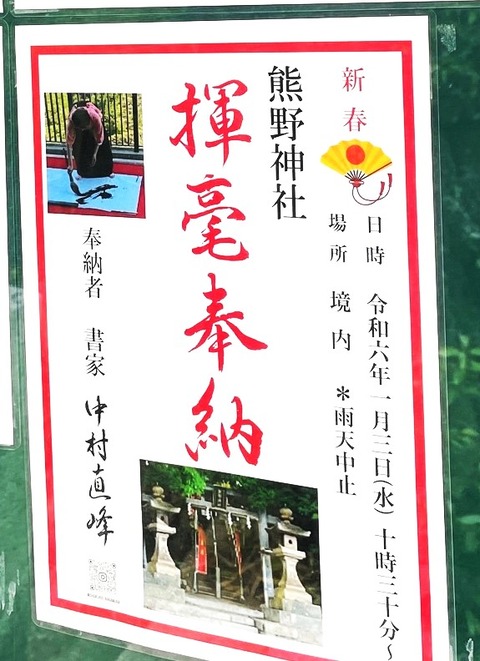 新春
日時 令和六年一月三日(水) 十時三十分~
場所 境内 *雨天中止
熊野神社
揮毫奉納
奉納者 書家 中村直峰